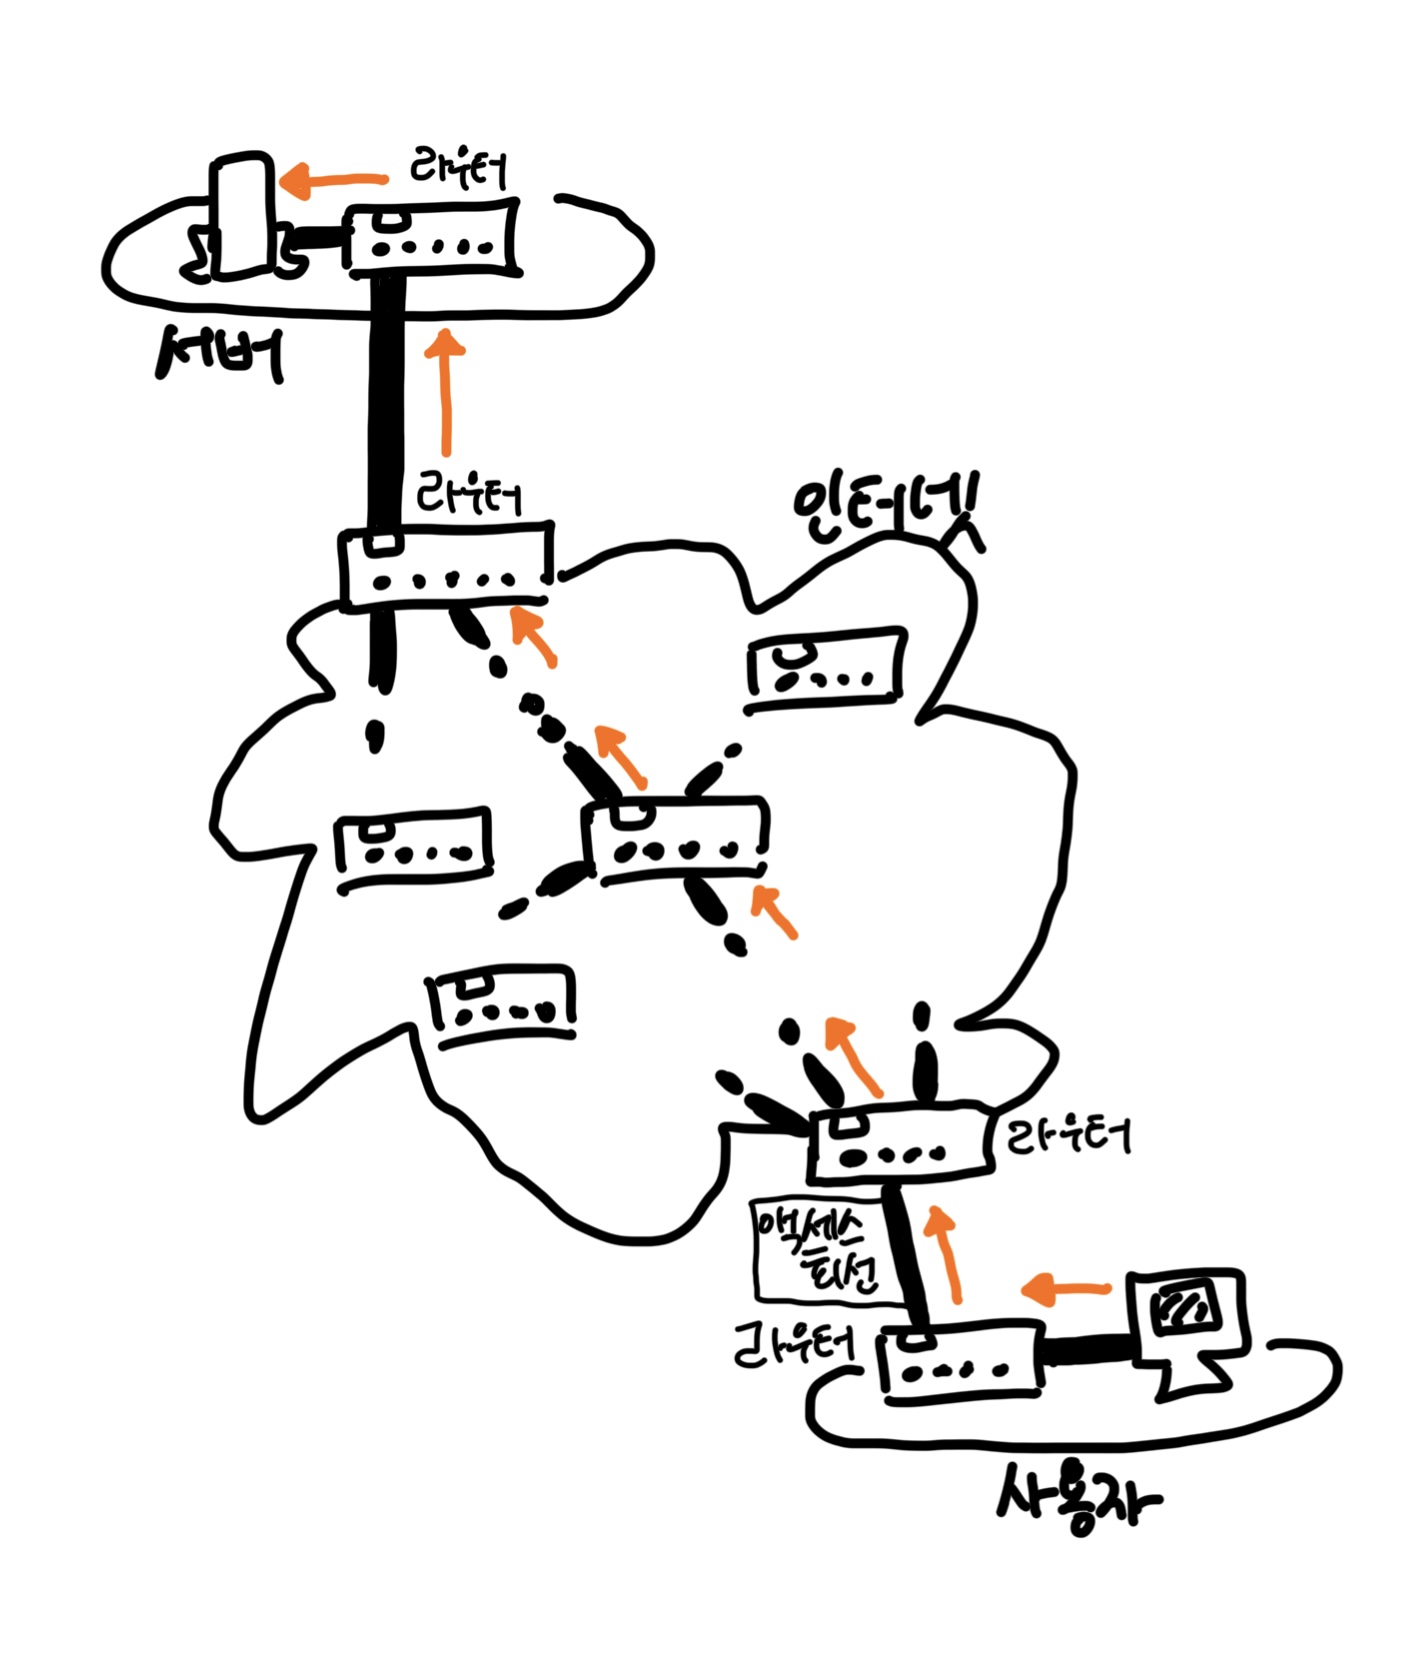 라우터
서버
라우터
인터넷
라우터
액세스
회선
라우터
사용자